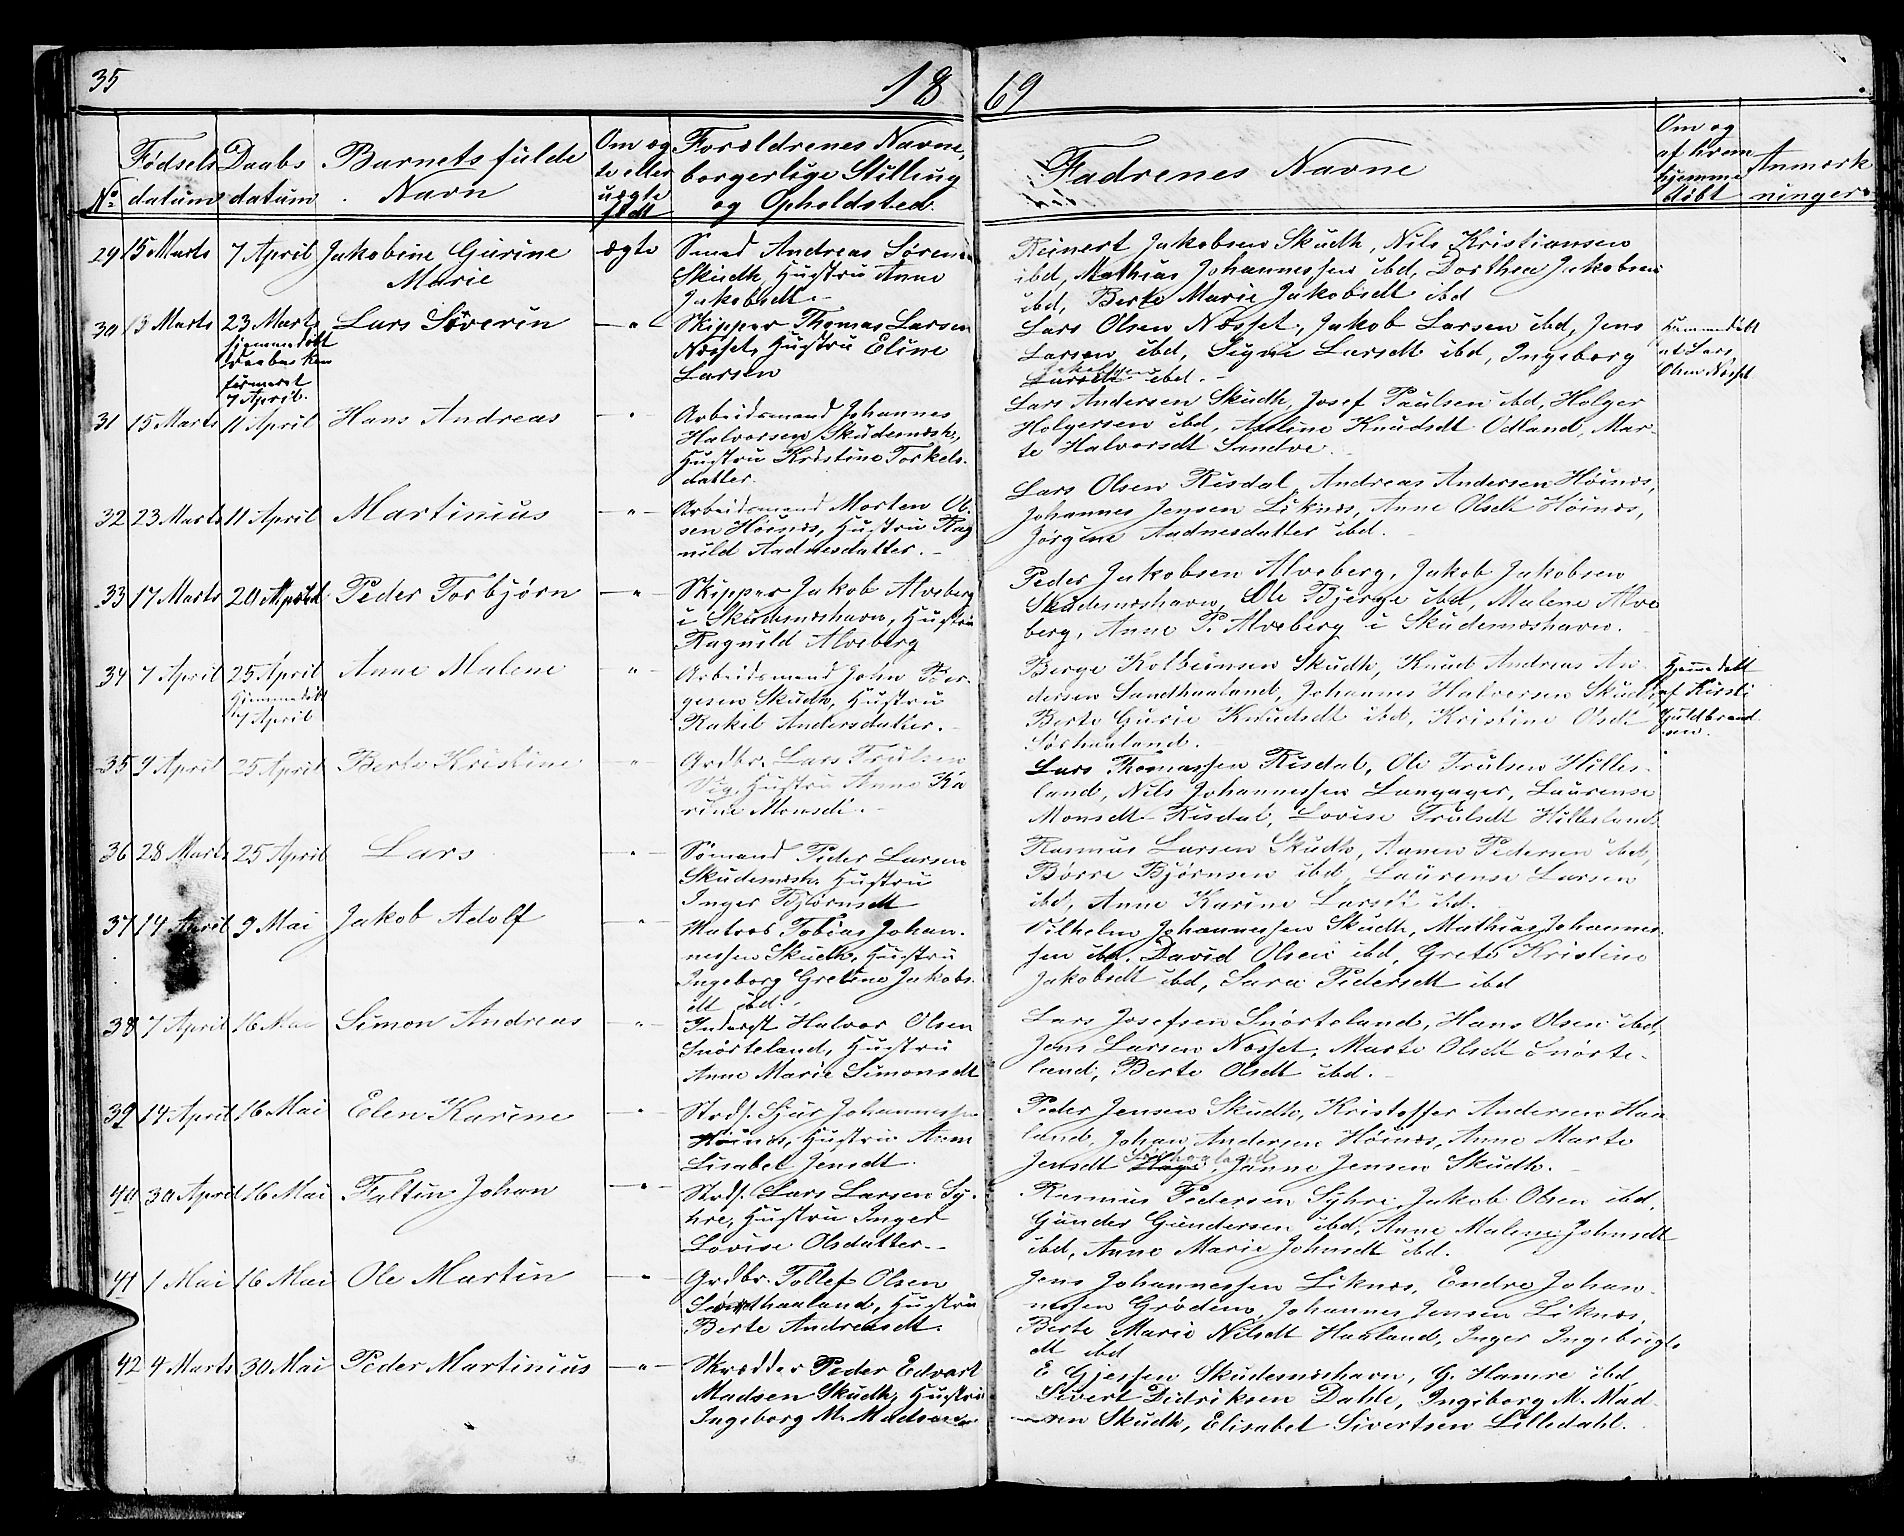 35
18 69
No
Fødsels
datum
Daabs
datum
Barnets fulde
Navn
Om æg
te eller
uægte
født
Forældrenes Navne,
borgerlige Stilling
og Opholdsted.
Fadrenes Navne
Om og
af hvem
hjemme
døbt
Anmærk
ninger
29 15 Marts 7 April Jakobine Gurine
Marie
ægte
Smed Andreas Sørensen
Skudh, Hustru Anne
Jakobsdt.
Reinert Jakobsen Skudh, Nils Kristiansen
ibd, Mathias Johannessen ibd, Dorthea Jakobsen
ibd, Berte Marie Jakobsdt ibd
30 13 Marts 23 Marts Lars Severin
hjemmedøbt
Daaben kon
firmeret
7 April.
— " —
Skipper Thomas Larsen
Næsset, Hustru Eline
Larsen
Lars Olsen Næsset, Jakob Larsen ibd, Jens
Larsen ibd, Signe Larsdt ibd, Ingeborg
Larsdt ibd.
Hjemmedøbt
af Lars
Olsen Næsset
31 15 Marts 11 April Hans Andreas
— " —
Arbeidsmand Johannes
Halvorsen Skudesnæsh,
Hustru Kristine Torkels-
datter.
Lars Andersen Skudh, Josef Paulsen ibd, Holger
Holgersen ibd, Malene Knudsdt Odland, Mar-
te Halvorsdt Sandve.
32 23 Marts 11 April Martinius
— " —
Arbeidsmand Morten Ol-
sen Høinæs, Hustru Rag
nild Aadnesdatter.
Lars Olsen Risdal, Andreas Andersen Høinæs,
Johannes Jensen Liknæs, Anne Olsdt Høinæs,
Jørgine Aadnesdatter ibd.
33 17 Marts 20 April Peder Torbjørn
— " —
Skipper Jakob Alveberg
i Skudesnæshavn, Hustru
Ragnild Alveberg
Peder Jakobsen Alveberg, Jakob Jakobsen
Skudesnæshavn, Ole Bjerge ibd, Malene Alve
berg, Anne P. Alveberg i Skudesnæshavn.
34 7 April 25 April Anne Malene
Hjemmedøbt
7 April
— " —
Arbeidsmand John Bør-
gesen Skudh, Hustru
Rakel Andersdatter.
Børge Kolbeinsen Skudh, Knud Andreas An-
dersen Sandhaaland, Johannes Halvorsen Skudh,
Berte Gurie Knudsdt ibd, Kristine Olsdt
Sørhaaland.
Hjemmedøbt
af Kirsti
Guldbrand
sen.
35 9 April 25 April Berte Kristine
— " —
Grdbr. Lars Trulsen
Vig, Hustru Anne Ka
rine Monsdt.
Lars Thomassen Risdal, Ole Trulsen Hilles-
land, Nils Johannessen Langager, Laurense
Monsdt Risdal, Lovise Trulsdt Hillesland.
36 28 Marts 25 April Lars
— " —
Sømand Peder Larsen
Skudesnæsh. Hustru
Inger Bjørnsdt
Rasmus Larsen Skudh, Amen Pedersen ibd,
Børre Bjørnsen ibd, Laurense Larsen
ibd, Anne Karine Larsdt ibd.
37 14 April 9 Mai Jakob Adolf
— " —
Matros Tobias Johan-
nessen Skudh, Hustru
Ingeborg Gretine Jakobs-
dt ibd.
Vilhelm Johannessen Skudh, Mathias Johannes-
sen ibd. David Olsen ibd, Grete Kristine
Jakobsdt ibd, Sara Pedersdt ibd
38 7 April 16 Mai Simon Andreas
— " —
Inderst Halvor Olsen
Snørteland, Hustru
Anne Marie Simonsdt
Lars Josefsen Snørteland, Hans Olsen ibd,
Jens Larsen Næsset, Marte Olsdt Snørte-
land, Berte Olsdt ibd.
39 14 April 16 Mai Elen Karine
— " —
Strds. Sjur Johannessen
Høinæs, Hustru Anne
Lisabet Jensdt.
Peder Jensen Skudh, Kristoffer Andersen Haa
land, Johan Andersen Høinæs, Anne Marte
Sørhaaland
Jensdt, Janne Jensen Skudh.
40 30 April 16 Mai Feltin Johan
— " —
Strds. Lars Larsen Sy-
hre, Hustru Inger
Lovise Olsdatter.
Rasmus Pedersen Syhre, Jakob Olsen ibd,
Gunder Gundersen ibd, Anne Malene Johnsdt
ibd, Anne Marie Johnsdt ibd.
41 1 Mai 16 Mai Ole Martin
— " —
Grdbr. Tollef Olsen
Sørhaaland, Hustru
Berte Andreasdt.
Jens Johannessen Liknæs, Endre Johan-
nessen Grødem, Johannes Jensen Liknæs,
Berte Marie Nilsdt Haaland, Inger Ingebrigts
dt ibd
42 4 Marts 30 Mai Peder Martinius
— " —
Skrædder Peder Edvart
Madsen Skudh, Hustru
Ingeborg M. Madsen
E Gjessen Skudesnæshavn, G. Hamre ibd,
Sivert Didriksen Dahle, Ingeborg M. Mad-
sen Skudh, Elisabet Sivertsen Lilledahl.